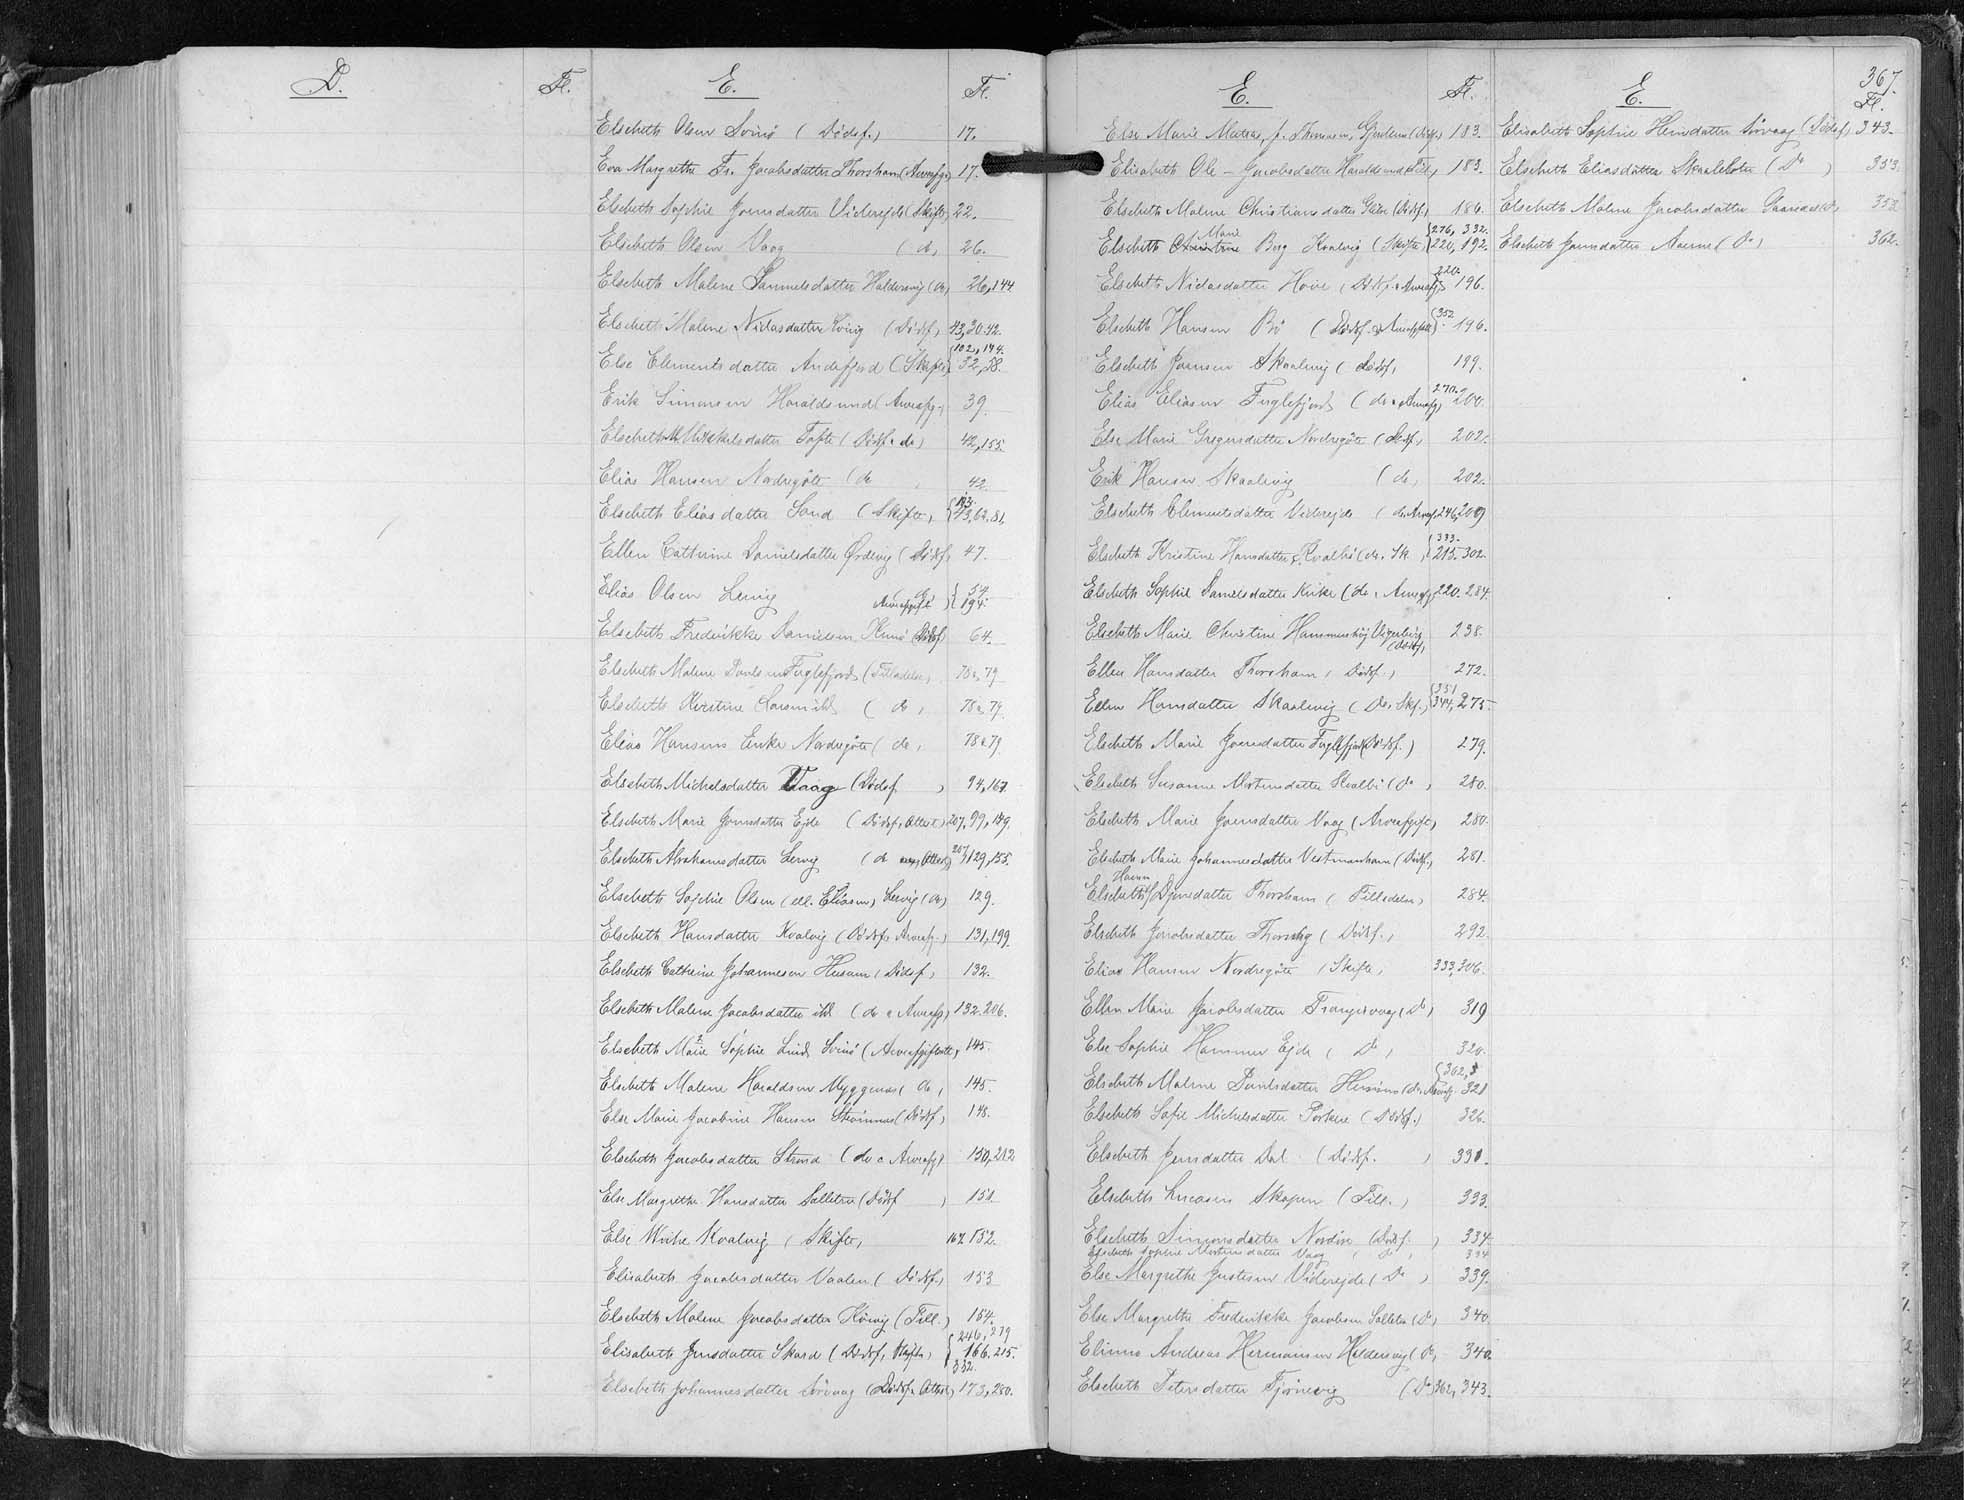 D.
Fl.
E.
Fl.
Elsebeth Olsen Svinø (Dødsf.) 17.
Eva Margrethe Fr. Jacobsdatter Thorshavn (Arveafg.) 17.
Elsebeth Sophie Joensdatter Viderejde (Skifte) 22.
Elsebeth Olsen Vaag (do) 26.
Elsebeth Malene Samuelsdatter Haldersvig (do) 26, 144
Elsebeth Malene Niclasdatter (Dødsf.) 43, 30. 42.
{102, 144.
Else Clementsdatter Andefjord (Skifte) 32, 58.
Erik Simonsen Haraldsund (Arveafg.) 39.
Elsebeth M. Mikkelsdatter Tofte (Dødsf. & do) 42, 155.
Elias Hansen Nordregøte (do) 42.
Elsebeth Eliasdatter Sand (Skifte) {43, 62, 81.
Ellen Cathrine Danielsdatter Ørdevig (Dødsf.) 47.
Elias Olsen Lervig Arveafgift) { 59. 194.
Elsebeth Frederikke Danielsen Kunø (Dødsf.) 64.
Elsebeth Malene Poulsen Fuglefjord (Tilladelse) 78 & 79
Elsebeth Kirstine (do) 78 & 79.
Elias Hansens Enke Nordregøte (do) 78 & 79
Elsebeth Michelsdatter Vaag (Dødsf.) 94, 167.
Elsebeth Marie Joensdatter Ejde (Dødsf., Attest) 207, 99, 149.
Elsebeth Abrahamsdatter Lervig (do Attest) 207, 129, 155.
Elsebeth Sophie Olsen (ell. Eliasen) Lervig (do) 129.
Elsebeth Hansdatter Kvalvig (Dødsf. & Arveafg.) 131, 199.
Elsebeth Cathrine Johannesen Husum (Dødsf.) 132.
Elsebeth Malene Jacobsdatter ibd. (do & Arveafg.) 132. 206.
Elsebeth Marie Sophie Lind Svinø (Arveafgiftsatt.) 145.
Elsebeth Malene Haraldsen Myggenæs (do) 145.
Else Marie Jacobine Hansen Strømnæs (Dødsf.) 148.
Elsebeth Jacobsdatter Strand (do & Arveafg.) 150, 212
Else Margrethe Hansdatter Solletrø (Dødsf.) 151
Else Kvalvig (Skifte) 167. 152.
Elisabeth Jacobsdatter Vaalen (Dødsf.) 153
Elsebeth Malene Jacobsdatter (Till.) 154.
{246, 279
Elisabeth Jensdatter Skard (Dødsf., Skifte) 166. 215.
332.
Elsebeth Johannesdatter Sørvaag (Dødsf. & Attest) 173, 280.
E.
Fl.
Else Marie f. Thomsen, (Dødsf.) 183.
Elisabeth Ole-Jacobsdatter Haraldsund 183.
Elsebeth Malene Christiansdatter (Dødsf.) 186.
Marie {276, 332.
Elsebeth Christine Berg Kvalvig (Skifte) {220, 192.
220.
Elsebeth Niclasdatter Hove (Dødsf. & Arveafg.) 196.
{352
Elsebeth Hansen Bø (Dødsf. & Arveafgift) 196.
Elsebeth Joensen Skaalevig (Dødsf.) 199.
270.
Elias Eliasen Fuglefjord (do & Arveafg.) 200.
Else Marie Gregersdatter Nordregøte (Dødsf.) 202.
Erik Hansen Skaalevig (do) 202.
Elsebeth Clementsdatter Viderejde (do, Arveaf. 246, 209
{333.
Elsebeth Kristine Hansdatter Kvalbø (do. Sk. {215. 302.
Elsebeth Sophie Danielsdatter Kirke (do. Arveafg. 220. 284.
Elsebeth Marie Christine Hammershøj (Dødsf.) 238.
Ellen Hansdatter Thorshavn (Dødsf.) 272.
{331
Ellen Hansdatter Skaalevig (Do, Skf.) {344, 275.
Elsebeth Marie Joensdatter Fuglefjord (Dødsf.) 279.
Elsebeth Susanne Mortensdatter Kvalbø (Do) 280.
Elsebeth Marie Joensdatter Vaag (Arveafgift) 280.
Elsebeth Marie Johannesdatter Vestmanhavn (Dødsf.) 281.
Elsebeth Djonedatter Thorshavn (Tilladelse) 284.
Elsebeth Jacobsdatter (Dødsf.) 292.
Elias Hansen Nordregøte (Skifte) 333, 306.
Ellen Marie Jacobsdatter Trangisvaag (Do) 319
Else Sophie Hammer Ejde (Do) 320.
{362,
Elsebeth Malene Poulsdatter (do. Arveafg. 321
Elsebeth Sofie Michelsdatter Porkere (Dødsf.) 326.
Elsebeth Jensdatter Dal (Dødsf.) 331.
Elsebeth Lucasen Skopen (Till.) 333.
Elsebeth Simonsdatter Nordvie (Dødsf.) 334
Elsebeth Sophie Mortensdatter Vaag (Do) 334
Else Margrethe Justesen Viderejde (Do) 339.
Else Margrethe Frederikke Jacobsen Solletrø (Do) 340.
Elinus Andreas Hermansen Haldersvig (Do) 340.
Elsebeth Petersdatter Tjørnevig (Do) 362, 343.
E.
367.
Fl.
Elisabeth Sophie Heinedatter Sørvaag (Dødsf.) 343.
Elsebeth Eliasdatter Skaaletofte (Do) 353.
Elsebeth Malene Jacobsdatter Gaasedal (Do) 353
Elsebeth Joensdatter (Do) 362.